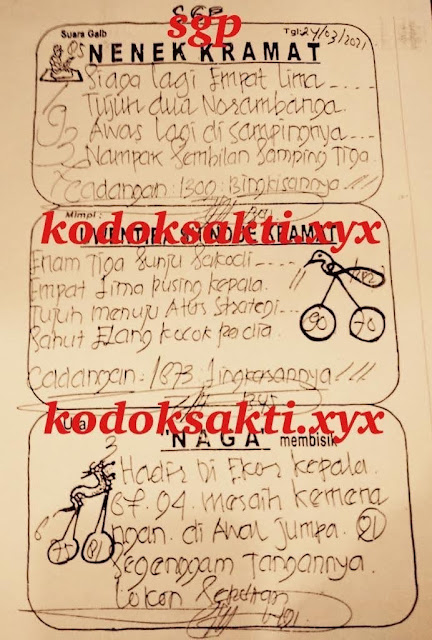 SGP
sgp
Suara Gaib
Tgl: 24/03/2021
NENEK KRAMAT
Siaga lagi Empat lima ....
Tujuh dua Nosambanga.
Awas lagi di sampingnya ....
Nampak Sembilan Samping Tiga.
Cadangan: 1300: Bingkisannya !!!
Mimpi:
KRAMAT
kodoksakti.xyx
Enam Tiga Sunju Sakodi ....
Empat Lima pusing kepala.
Tujuh menuju Atas Strategi ...
Sahut Elang kocok padia.
90 70
Cadangan: 1873: Lingkarannya !!!
kodoksakti.xyx
'NAGA' membisik
3
Hadir Di Ekor kepala.
67. 94. masih kemena
ngan. di Awal Jumpa. 21
Segenggam Tangannya.
6
81